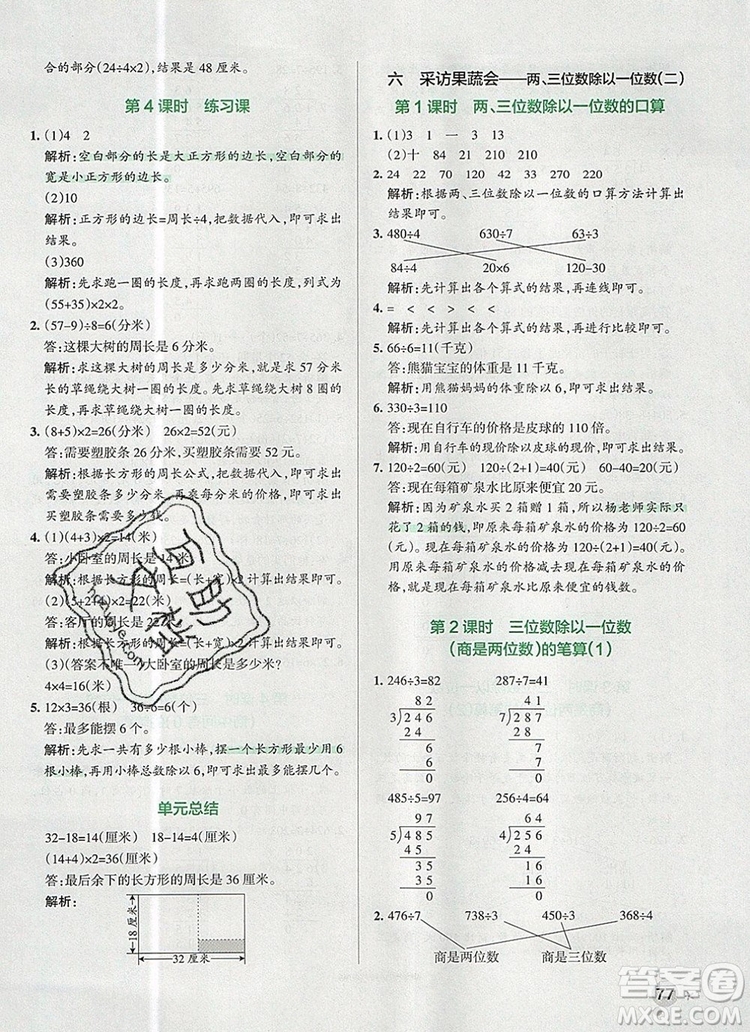 合的部分(24÷4×2),结果是 48 厘米。
第 4 课时 练习课
1. (1)4 2
解析:空白部分的长是大正方形的边长,空白部分的
宽是小正方形的边长。
(2)10
解析:正方形的边长=周长÷4,把数据代入,即可求出
结果。
(3)360
解析:先求跑一圈的长度,再求跑两圈的长度,列式为
(55+35)×2×2。
2. (57-9)÷8=6(分米)
答:这棵大树的周长是 6 分米。
解析:求这棵大树的周长是多少分米,就是求 57 分米
长的草绳绕大树 8 周后剩下 9 分米,用去的草绳的长
度除以 8 即可。
3. (8+5)×2=26(分米) 26×2=52(元)
答:需要塑胶条 26 分米,买塑胶条需要 52 元。
解析:根据长方形的周长公式,把数据代入,即可求出
需要塑胶条多少分米。再乘每分米的价格,即可求出
买塑胶条的价格。
4. (1)(4+3)×2=14(米)
答:小卧室的周长是 14 米。
解析:根据长方形的周长=(长+宽)×2 计算出结果即可。
(2)(5+2+4)×2=22(米)
答:客厅的周长是 22 米。
解析:根据长方形的周长=(长+宽)×2 计算出结果即可。
(3)(答案不唯一)大卧室的周长是多少米?
4×4=16(米)
5. 12×3=36(根) 36÷6=6(个)
答:最多能摆 6 个。
解析:先求一共有多少根小棒,摆一个长方形最少用 6
根小棒,再用小棒总数除以 6,即可求出最多能摆几个。
单元总结
32-18=14(厘米) 18-14=4(厘米)
(14+4)×2=36(厘米)
答:最后余下的长方形的周长是 36 厘米。
解析:
18 厘米
32 厘米
六 采访果蔬会——两、三位数除以一位数(二)
第 1 课时 两、三位数除以一位数的口算
1. (1)3 1 3 13
(2)十 84 21 210 210
2. 24 22 70 120 120 70
解析:根据两、三位数除以一位数的口算方法计算出
结果即可。
3. 480÷4 630÷7 63÷3
84÷4 20×6 120-30
解析:先计算出各个算式的结果,再连线即可。
4. = < < > < <
解析:先计算出各个算式的结果,再进行比较即可。
5. 66÷6=11(千克)
答:熊猫宝宝的体重是 11 千克。
解析:用熊猫妈妈的体重除以 6 即可。
6. 330÷3=110
答:现在自行车的价格是皮球的 110 倍。
解析:用自行车的现价除以皮球的现价,即可求出结果。
7. 120÷2=60(元) 120÷6=20(元)
答:现在每箱矿泉水比原来便宜 20 元。
解析:因为矿泉水买 2 箱赠 1 箱,所以杨老师实际只
花了 2 箱的钱,即原来每箱矿泉水的价格为 120÷2=60
(元)。现在每箱矿泉水的价格为 120÷3=40(元)。
用原来每箱矿泉水的价格减去现在每箱矿泉水的价
格,就是现在每箱矿泉水比原来便宜的钱数。
第 2 课时 三位数除以一位数
(商是两位数)的笔算(1)
1. 246÷3=82 287÷7=41
8 2 4 1
3 2 4 6 7 2 8 7
2 4 2 8
6 7
6 7
0 0
485÷5=97 256÷4=64
9 7 6 4
5 4 8 5 4 2 5 6
4 5 2 4
3 5 1 6
3 5 1 6
0 0
2. 476÷7 738÷3 450÷3 368÷4
商是两位数 商是三位数
77
百助文档
答案圈